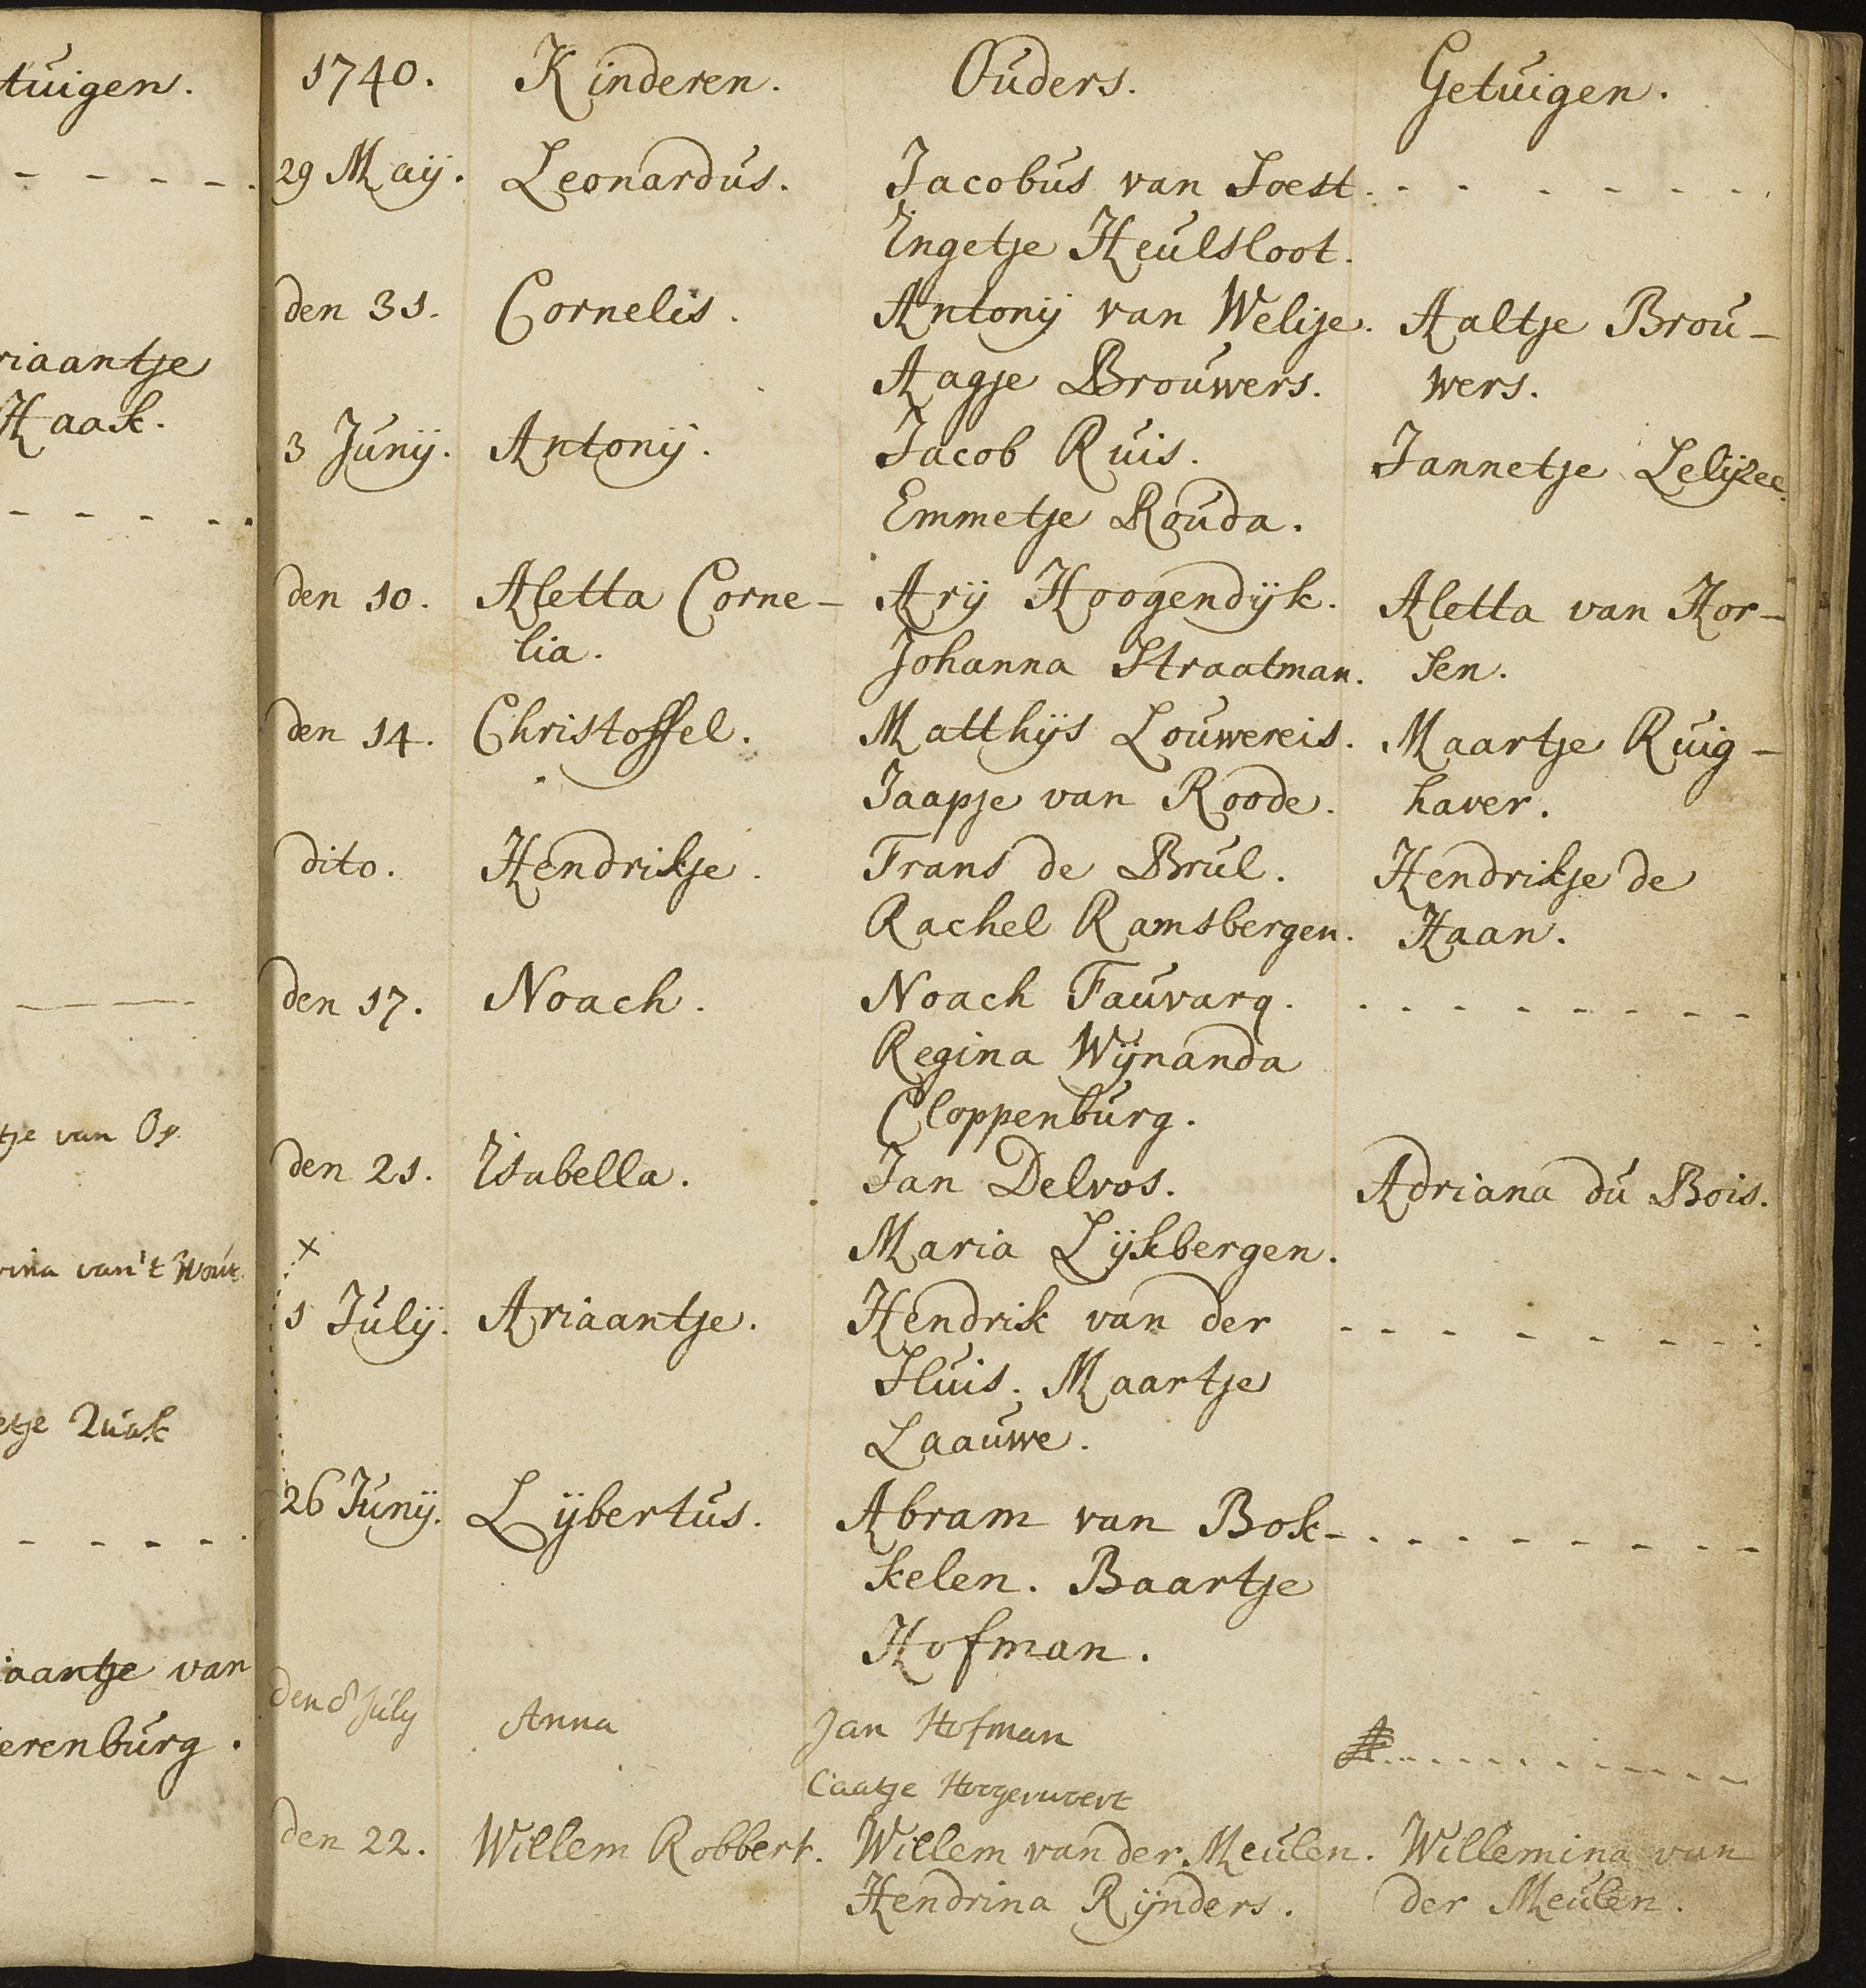 tuigen.
riaantje
Haak.
tje van Os
rina van 't Wout
etje Quak
iaantje van
erenburg.
1740. Kinderen. Ouders. Getuigen.
29 Maij. Leonardus. Jacobus van Soest. - - - - - - -
Ingetje Heulsloot.
den 31. Cornelis. Antonij van Welije. Aaltje Brou-
Aagje Brouwers. wers.
3 Junij. Antonij. Jacob Ruis. Jannetje Lelijzee.
Emmetje Rouda.
den 10. Aletta Corne- Arij Hoogendijk. Aletta van Hor-
lia. Johanna Straatman. sen.
den 14. Christoffel. Matthijs Louwereis. Maartje Ruig-
Jaapje van Roode. haver.
dito. Hendrikje. Frans de Brul. Hendrikje de
Rachel Ramsbergen. Haan.
den 17. Noach. Noach Fauvarq. - - - - - - - -
Regina Wijnanda
Cloppenburg.
den 21. Isabella. Jan Delvos. Adriana du Bois.
x Maria Lijkbergen.
1 Julij. Ariaantje. Hendrik van der - - - - - - - -
Sluis. Maartje
Laauwe.
26 Junij. Lijbertus. Abram van Bok- - - - - - - - -
kelen. Baartje
Hofman.
den 8 July Anna Jan Hofman - - - - - - - -
Caatje Hogerwoert
den 22. Willem Robbert. Willem van der Meulen. Willemina van
Hendrina Rijnders. der Meulen.